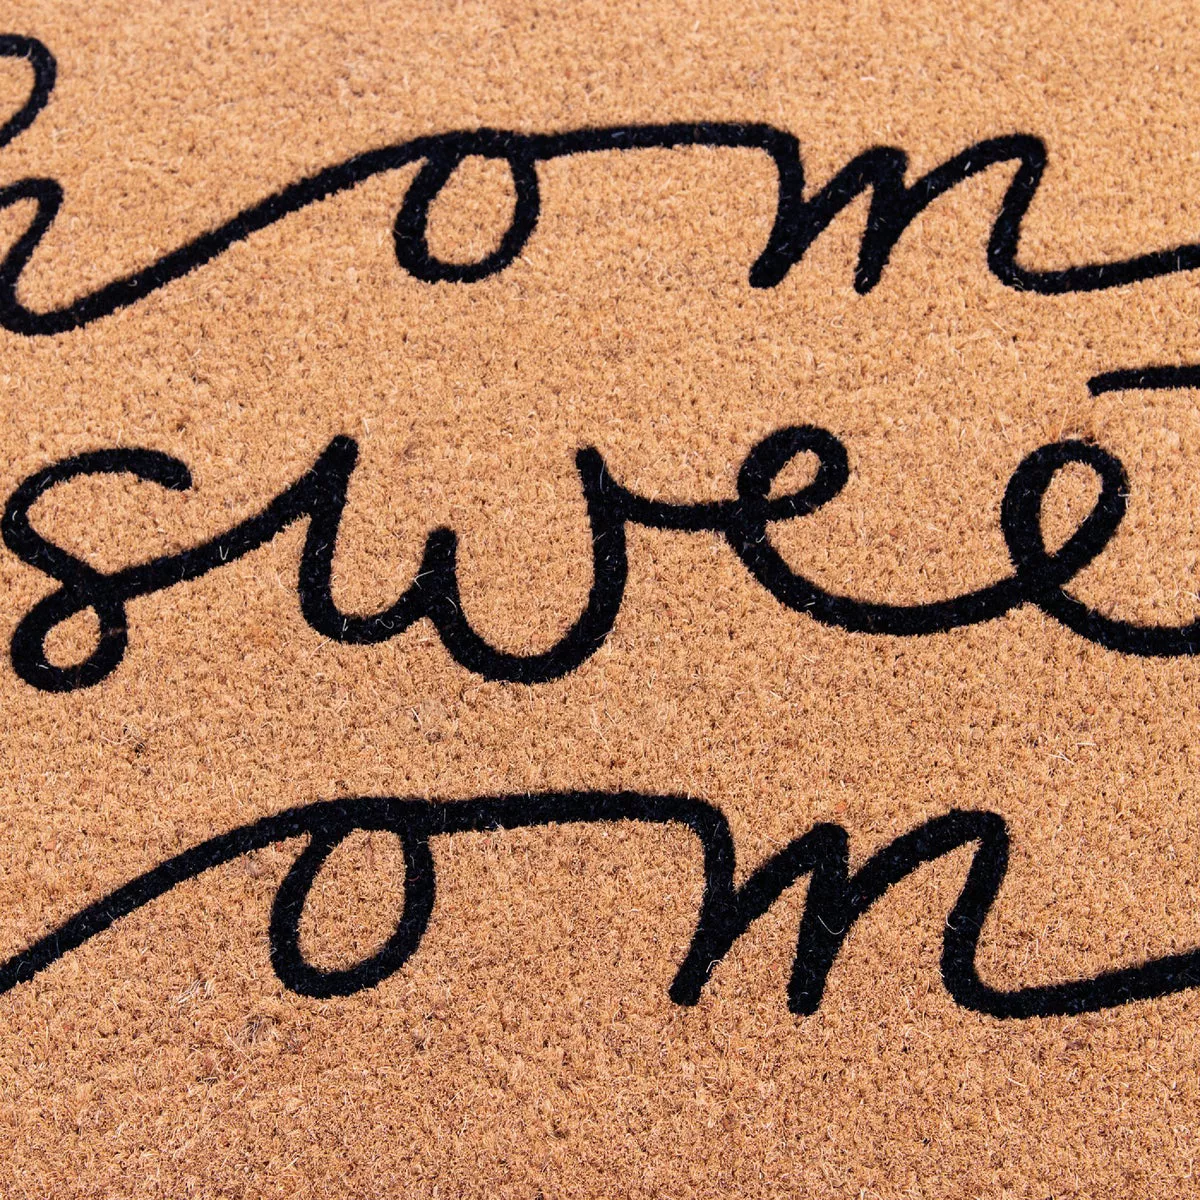 hom
swee
om